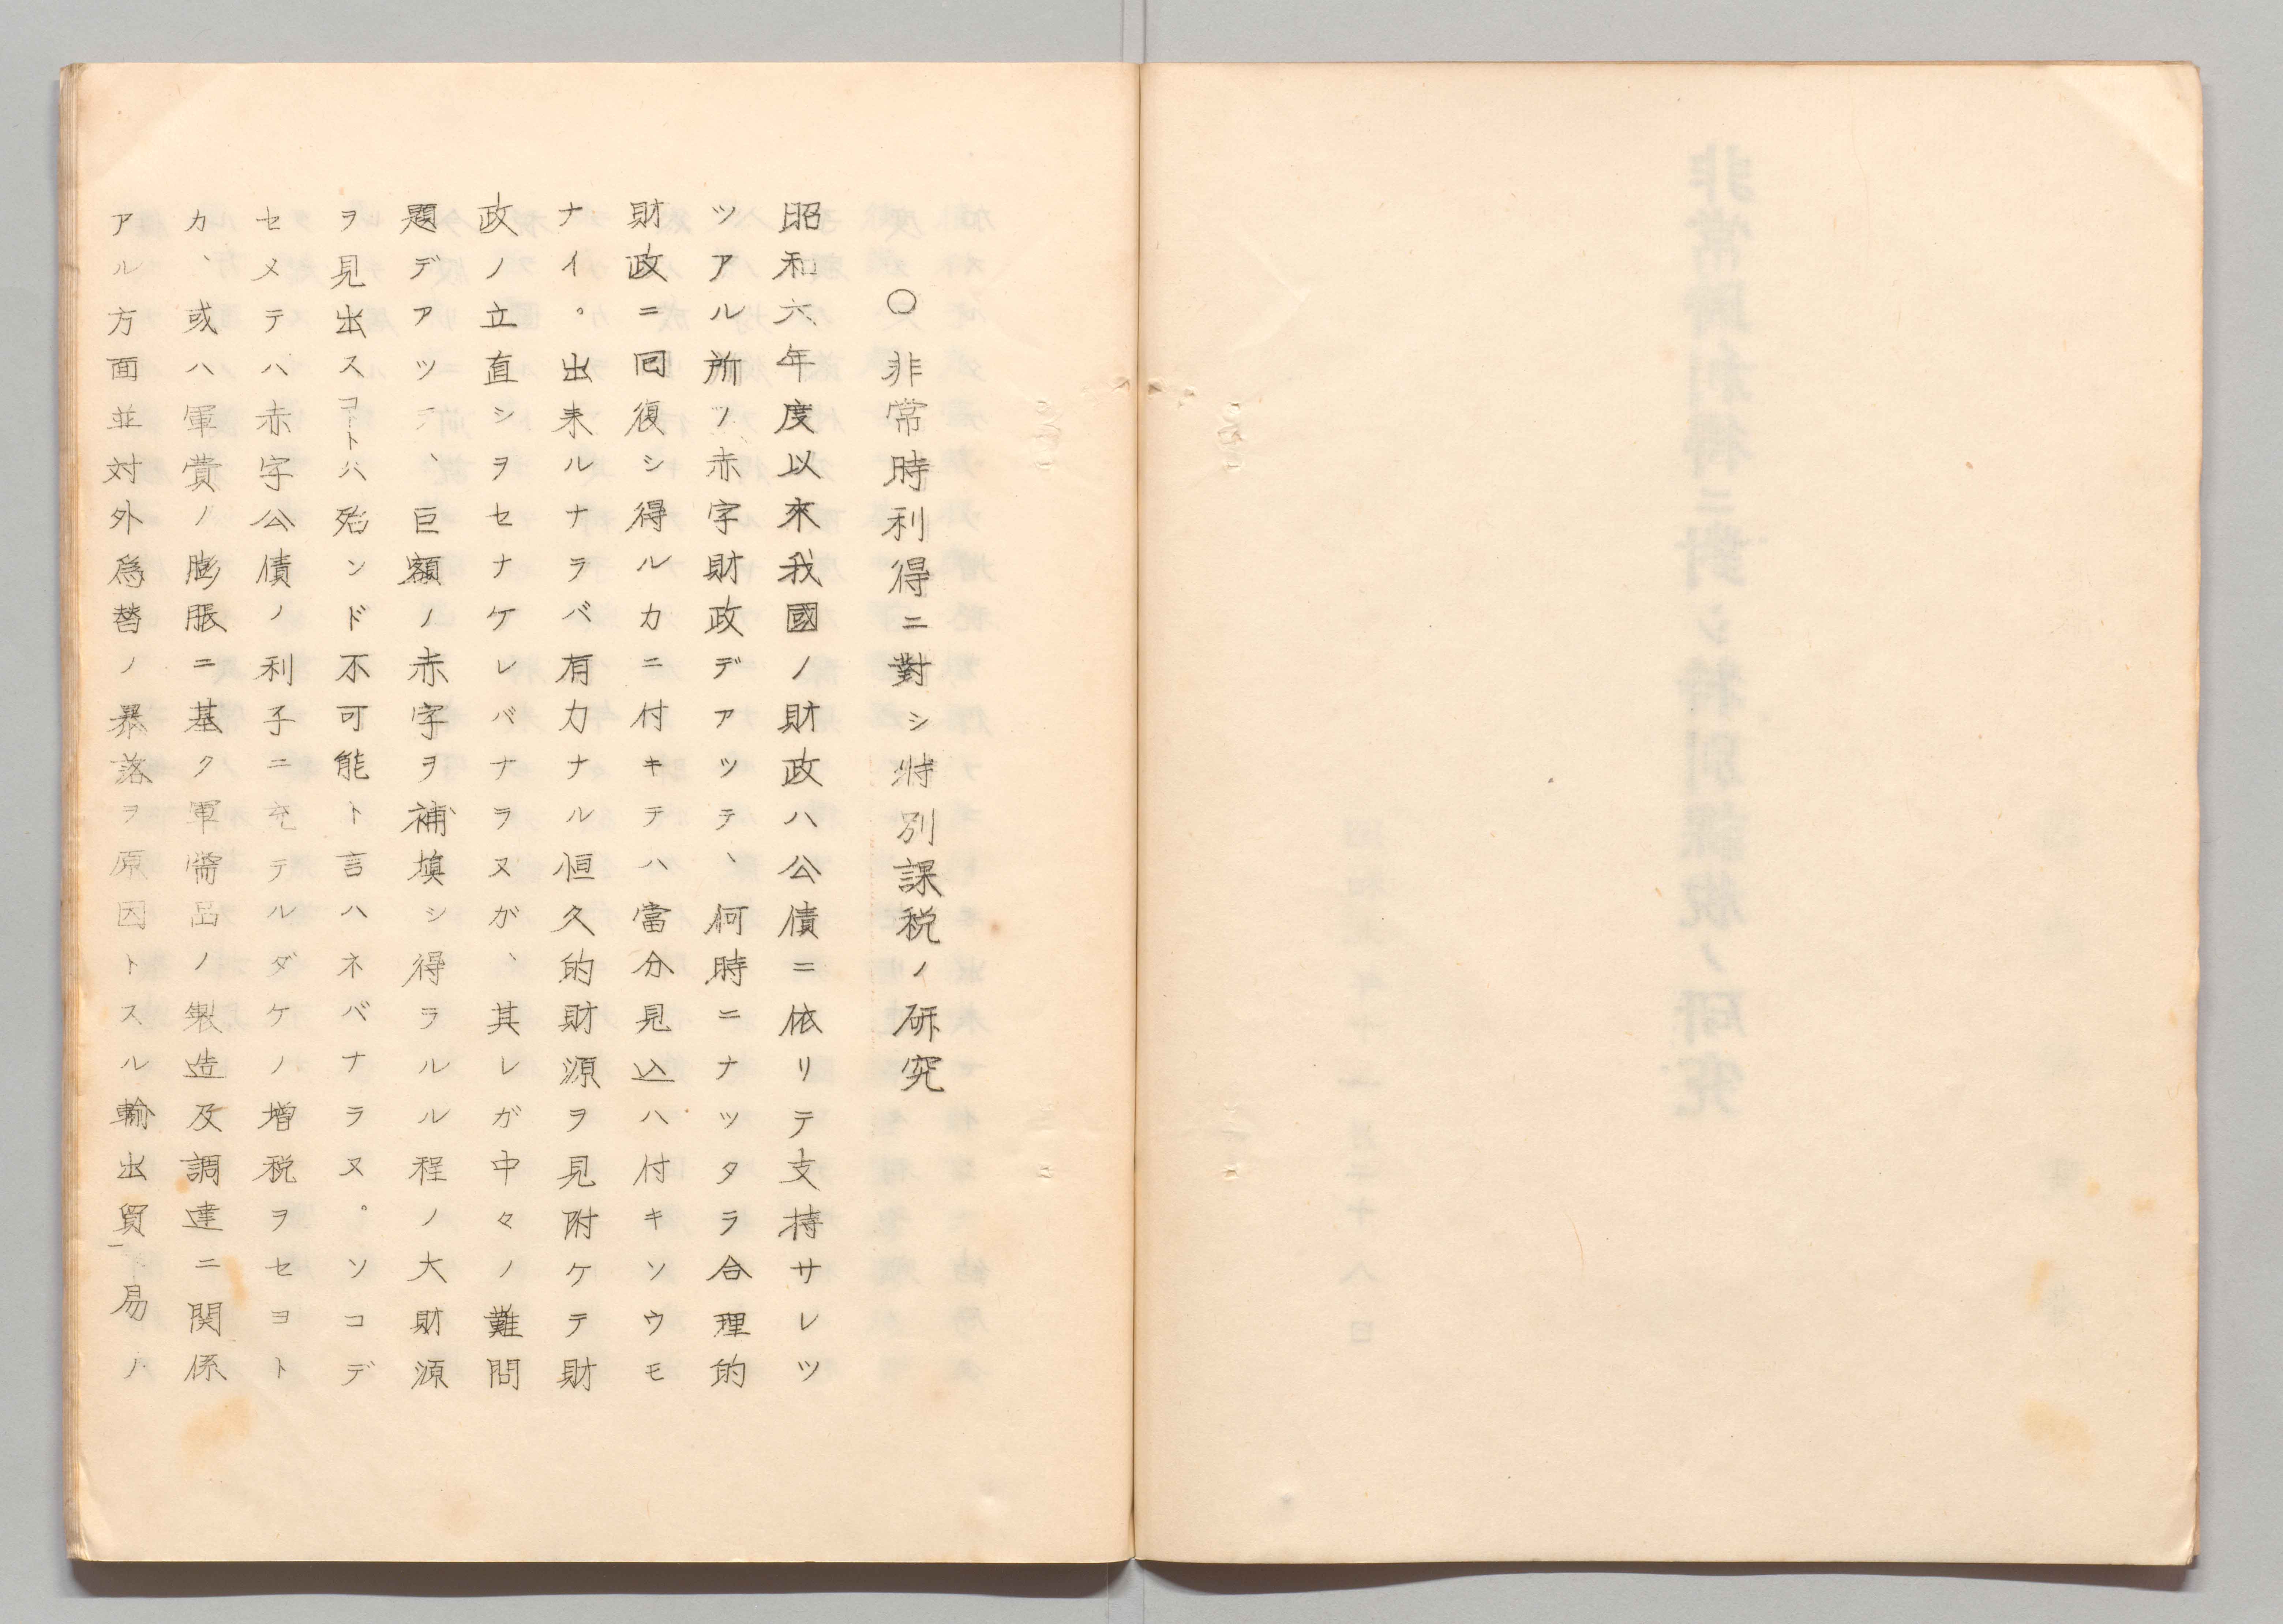 ○非常時利得ニ對シ特別課税ノ研究
昭和六年度以來我國ノ財政ハ公債ニ依リテ支持サレツ
ツアル所ノ赤字財政デアツテ、何時ニナツタラ合理的
財政ニ囘復シ得ルカニ付キテハ當分見込ハ付キソウモ
ナイ。出来ルナラバ有力ナル恒久的財源ヲ見附ケテ財
政ノ立直シヲセナケレバナラヌガ、其レガ中々ノ難問
題デアツテ、巨額ノ赤字ヲ補填シ得ラルル程ノ大財源
ヲ見出スコトハ殆ンド不可能ト言ハネバナラヌ。ソコデ
セメテハ赤字公債ノ利子ニ充テルダケノ増税ヲセヨト
カ、或ハ軍費ノ膨脹ニ基ク軍需品ノ製造及調達ニ関係
アル方面並対外為替ノ暴落ヲ原因トスル輸出貿易ノ